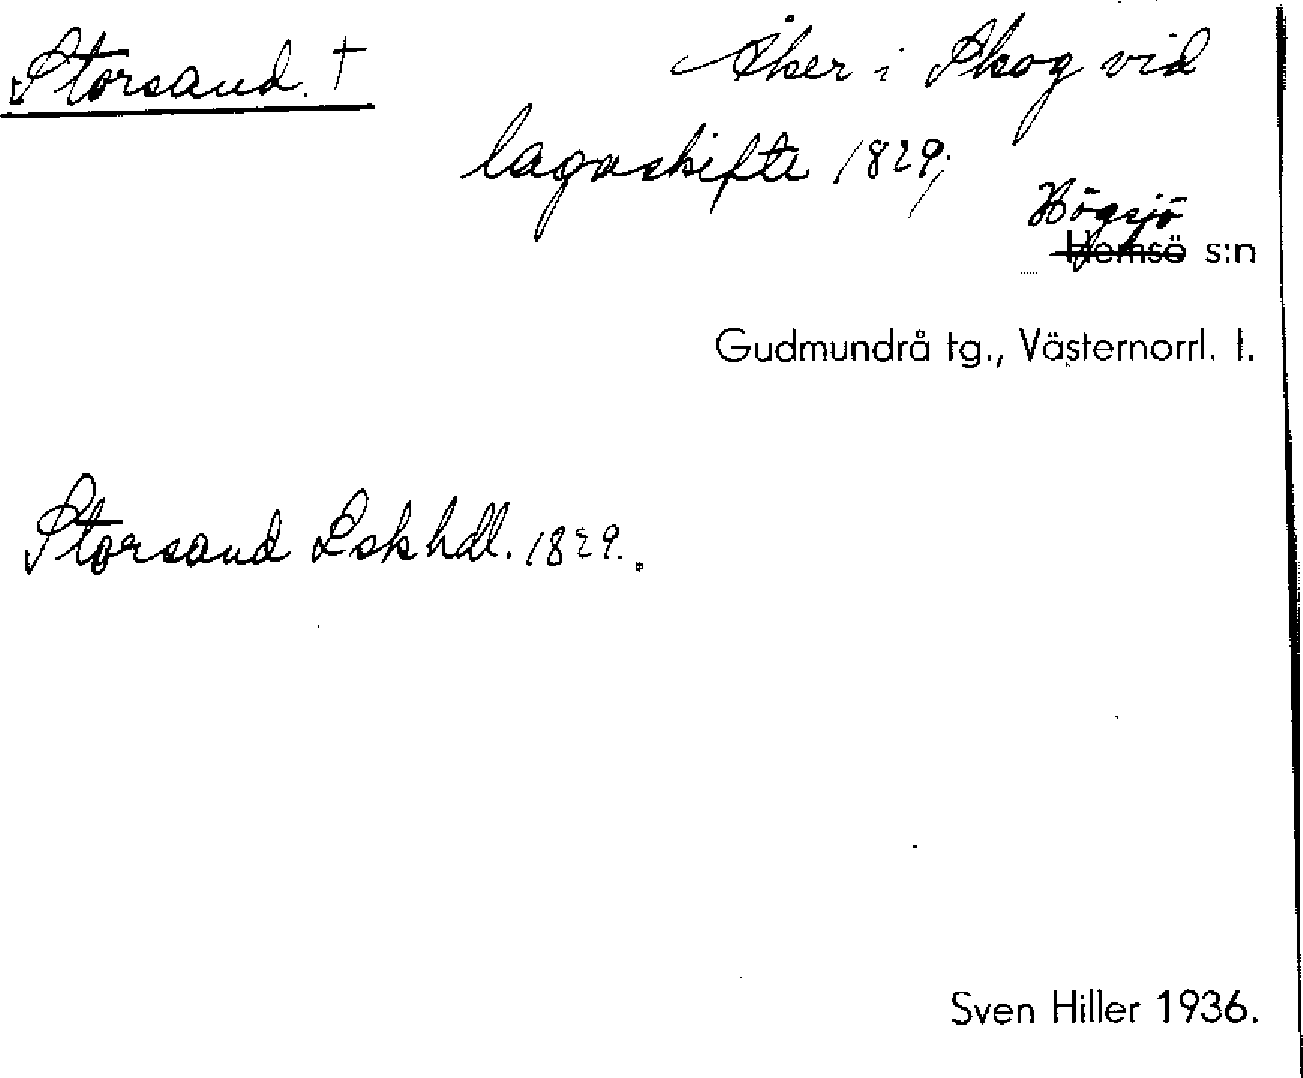 Storsand. †
Åker i Skog vid
lagaskifte 1829;
Högsjö
Hemsö s:n
Gudmundrå tg., Västernorrl. l.
Storsand Lskhdl. 1829.
Sven Hiller 1936.